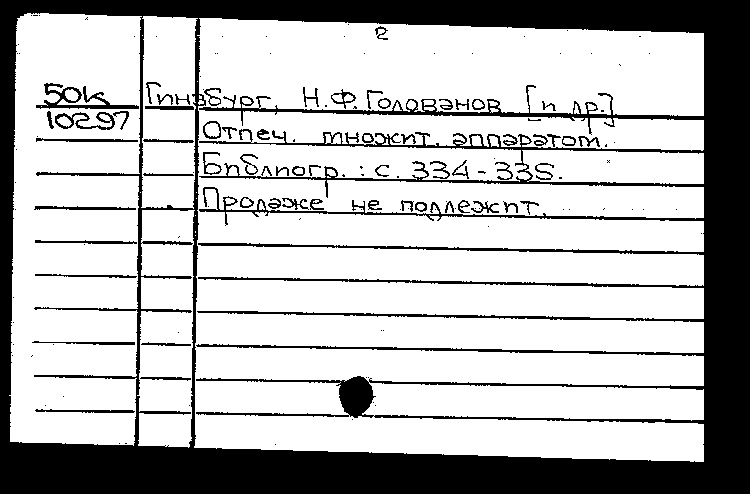 2
50К Гинзбург, Н.Ф.Голованов [и др.]
10297 Отпеч. множит. аппаратом.
Библиогр.: с. 334-335.
Продаже не подлежит.